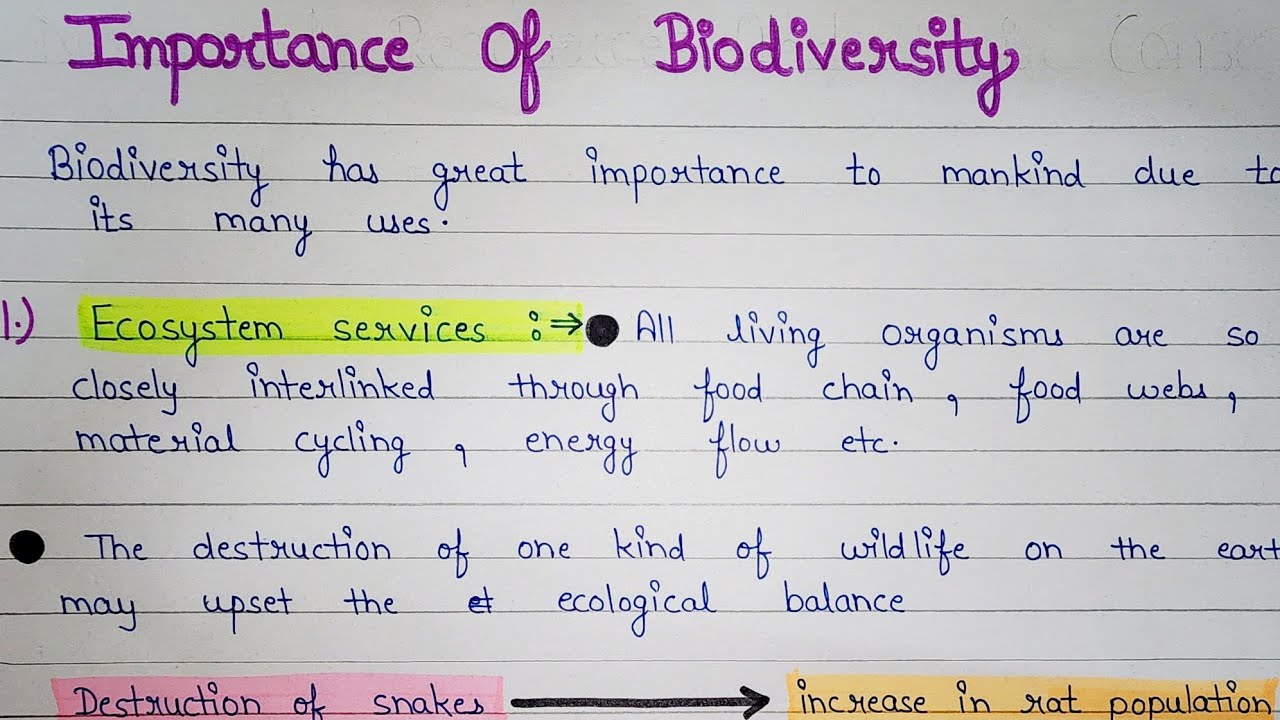 Importance Of Biodiversity
Biodiversity has great importance to mankind due to
its many uses.
1.) Ecosystem services :⇒ ● All living organisms are so
closely interlinked through food chain, food webs,
material cycling, energy flow etc.
● The destruction of one kind of wildlife on the eart
may upset the ecological balance
Destruction of snakes ⟶ increase in rat population